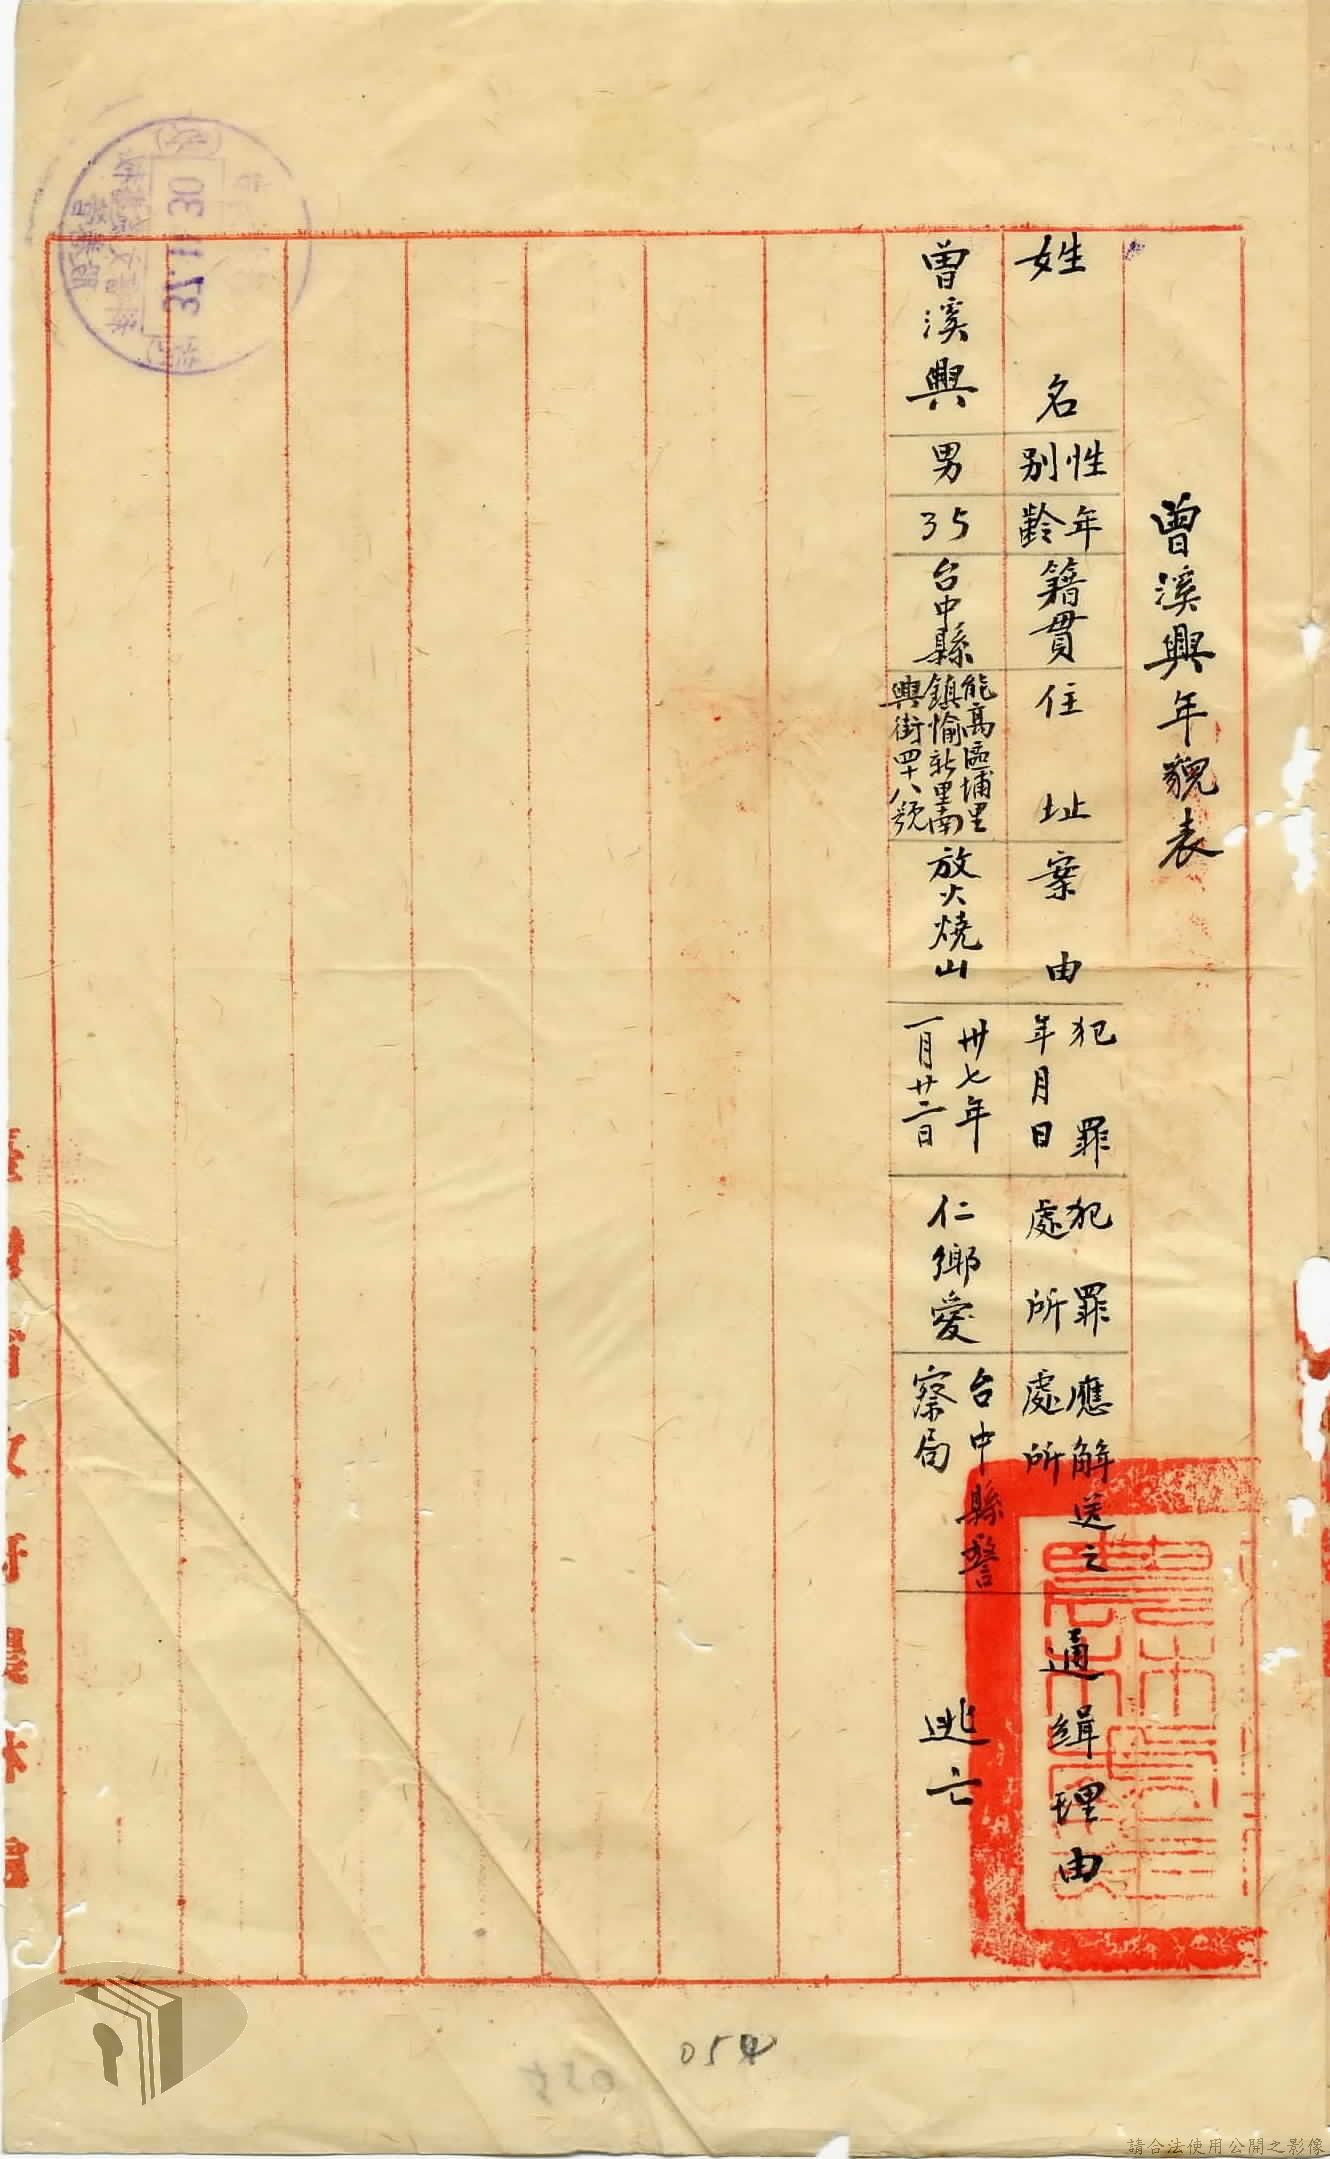 曾溪興年貌表
姓名
性別
年齡
籍貫
住址
案由
犯罪年月日
犯罪處所
應解送之處所
通緝理由
曾溪興
男
35
台中縣
能高區埔里
鎮愉新里南
興街四十八號
放火燒山
卅七年
一月廿二日
仁鄉愛
台中縣警
察局
逃亡
37 11 30
臺灣省政府農林處
054
請合法使用公開之影像